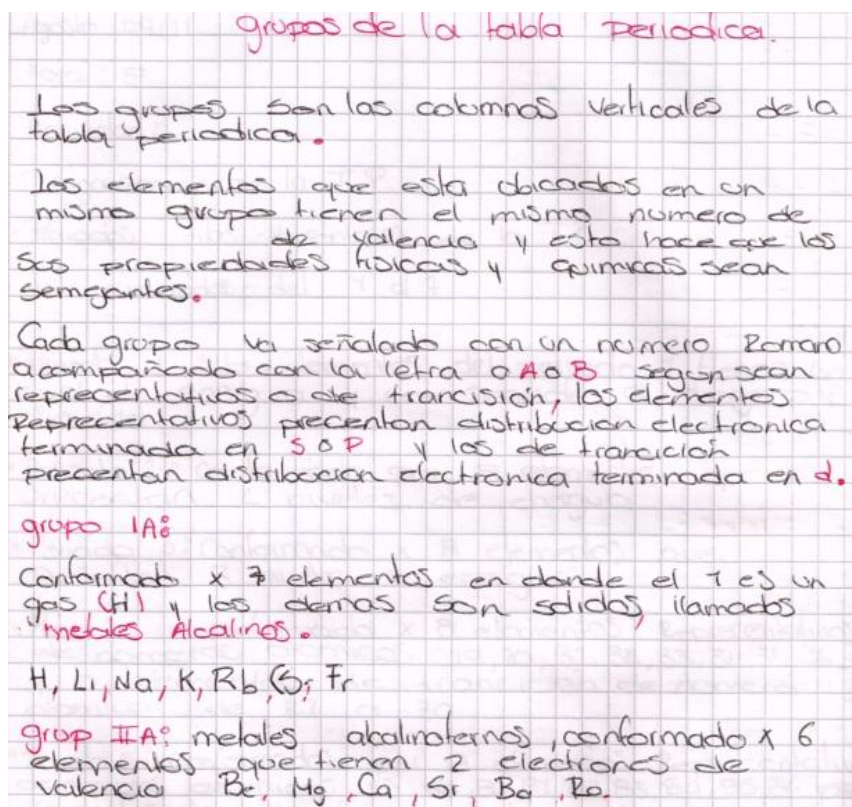 grupos de la tabla periodica.
Los grupos son las columnas verticales de la
tabla periodica.
Los elementos que esta ubicados en un
mismo grupo tienen el mismo numero de
de valencia y esto hace que los
sus propiedades fisicas y quimicas sean
semejantes.
Cada grupo va señalado con un numero Romano
acompañado con la letra o A o B segun sean
reprecentativos o de trancisión, los elementos
Reprecentativos precentan distribucion electronica
terminada en S o P y los de trancición
precentan distribucion electronica terminada en d.
grupo IA:
Conformado x 7 elementos en donde el 1 es un
gas (H) y los demas son solidos, llamados
metales Alcalinos.
H, Li, Na, K, Rb, Cs, Fr
grup IIA: metales alcalinoternos, conformado x 6
elementos que tienen 2 electrones de
valencia Be, Mg, Ca, Sr, Ba, Ra.